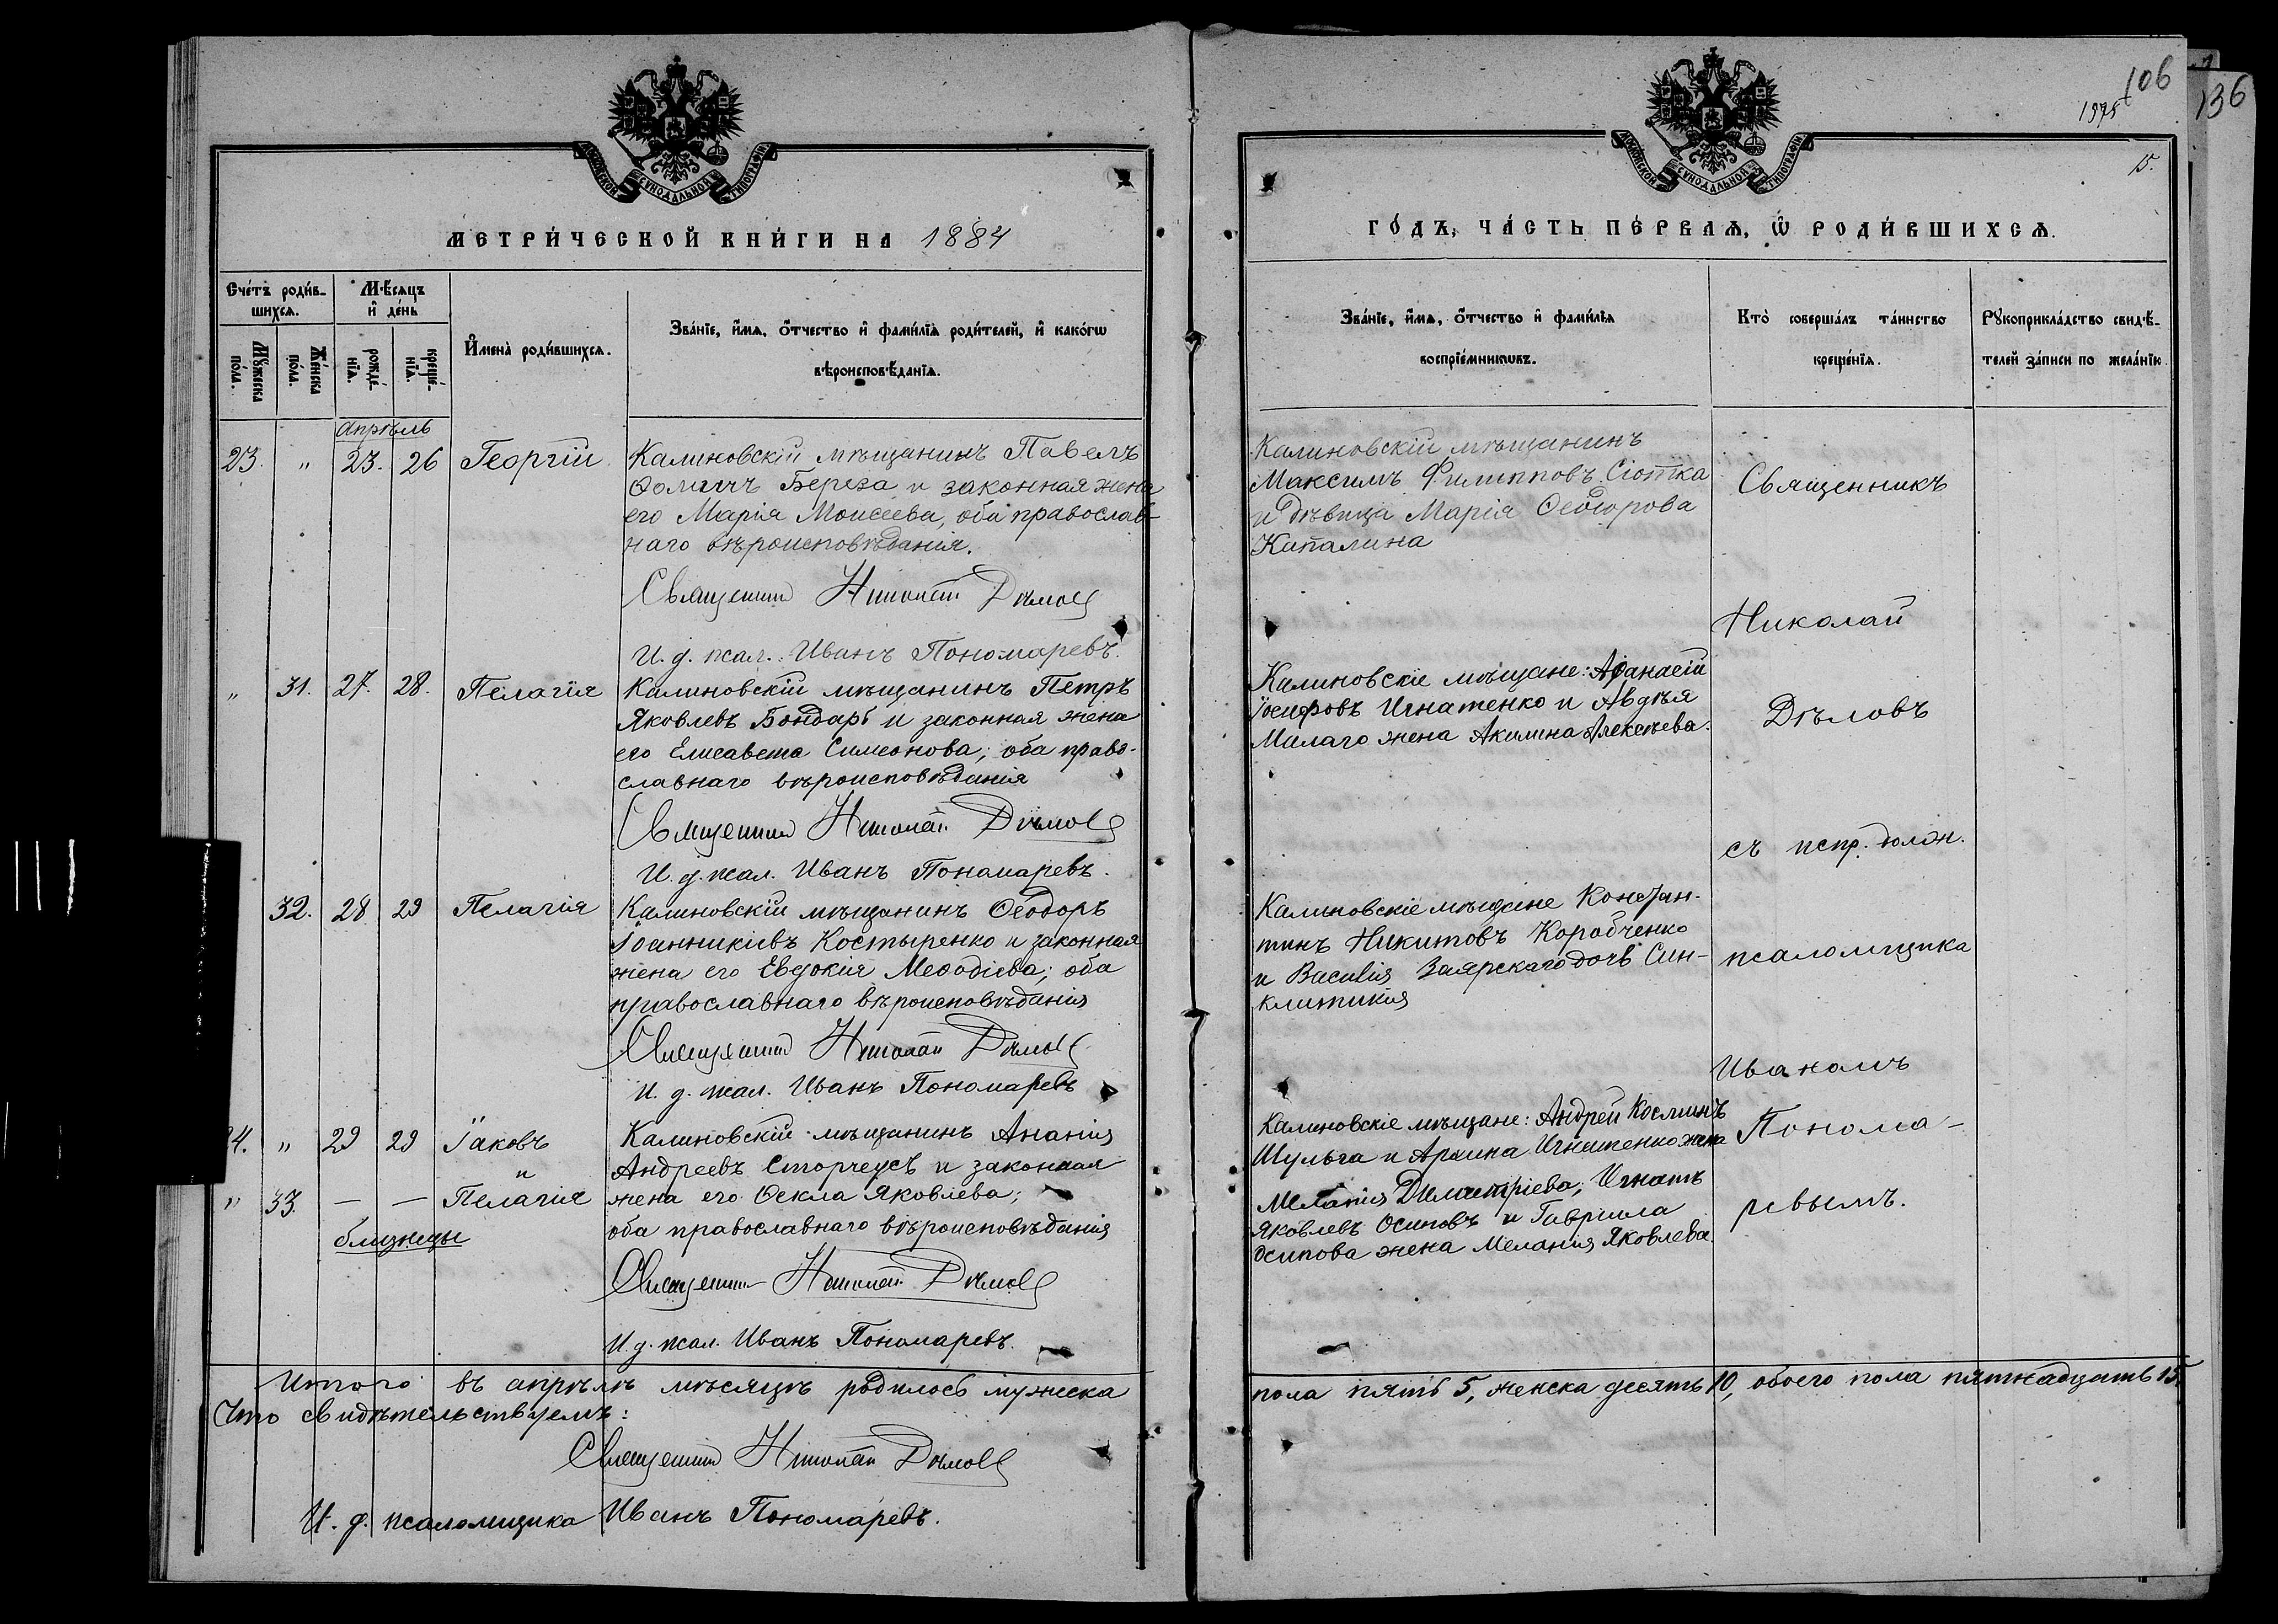 106
136
1975
15.
МОСКОВСКОЙ СѴНОДАЛЬНОЙ ТИПОГРАФІИ
МОСКОВСКОЙ СѴНОДАЛЬНОЙ ТИПОГРАФІИ
МЕТРИ́ЧЕСКОЙ КНИ́ГИ НА 1884
ГО́ДЪ, ЧА́СТЬ ПЕ́РВАѦ, Ѡ҆ РОДИ́ВШИХСѦ.
Сче́тъ роди́в-
шихсѧ.
Мѣ́сѧцъ
и҆ де́нь
Мꙋ́жеска
по́ла.
Же́нска
по́ла.
рожде́-
нїѧ.
креще́-
нїѧ.
И҆мена̀ роди́вшихсѧ.
Зва́нїе, и҆́мѧ, ѻ҆́тчество и҆ фами́лїѧ роди́телей, и҆ како́гѡ
вѣроисповѣ́данїѧ.
Зва́нїе, и҆́мѧ, ѻ҆́тчество и҆ фами́лїѧ
воспрїе́мникѡвъ.
Кто̀ соверша́лъ та́инство
креще́нїѧ.
Рꙋкоприкла́дство свидѣ́-
телей за́писи по жела́нїю.
Апрѣль
23. " 23. 26 Георгій
Калиновскій мѣщанинъ Павелъ
Ѳомичъ Береза и законная жена
его Марія Моисеева, оба православ-
наго вѣроисповѣданія.
Священникъ Николай Дѣловъ
И. д. псал. Иванъ Пономаревъ.
Калиновскій мѣщанинъ
Максимъ Филипповъ Сіотка
и дѣвица Марія Ѳеодорова
Капалина
" 31. 27. 28. Пелагія
Калиновскій мѣщанинъ Петръ
Яковлевъ Бондарь и законная жена
его Елисавета Симеонова; оба право-
славнаго вѣроисповѣданія
Священникъ Николай Дѣловъ
И. д. псал. Иванъ Пономаревъ.
Калиновскіе мѣщане: Аѳанасій
Іосифовъ Игнатенко и Авдѣя
Малаго жена Акилина Алексѣева.
32. 28 29 Пелагія
Калиновскій мѣщанинъ Ѳеодоръ
Іоанникіевъ Костыренко и законная
жена его Евдокія Меѳодіева; оба
православнаго вѣроисповѣданія
Священникъ Николай Дѣловъ
И. д. псал. Иванъ Пономаревъ
Калиновскіе мѣщане Констан-
тинъ Никитовъ Коробченко
и Василія Заярскаго дочь Син-
клитикія
4. " 29 29 Іаковъ
и
" 33. — — Пелагія
близнецы
Калиновскій мѣщанинъ Ананія
Андреевъ Сторчеусъ и законная
жена его Ѳекла Яковлева;
оба православнаго вѣроисповѣданія
Священникъ Николай Дѣловъ
И. д. псал. Иванъ Пономаревъ.
Калиновскіе мѣщане: Андрей Косминъ
Шульга и Игнатенко жена
Меланія Димитріева; Игнатъ
Яковлевъ Осиповъ и Гавриила
Осипова жена Меланія Яковлева.
Священникъ
Николай
Дѣловъ
съ испр. должн.
псаломщика
Иваномъ
Понома-
ревымъ.
Итого въ апрѣлѣ мѣсяцѣ родилось мужеска
пола пять 5, женска десять 10, обоего пола пятнадцать 15.
Что свидѣтельствуемъ:
Священникъ Николай Дѣловъ
И. д. псаломщика Иванъ Пономаревъ.